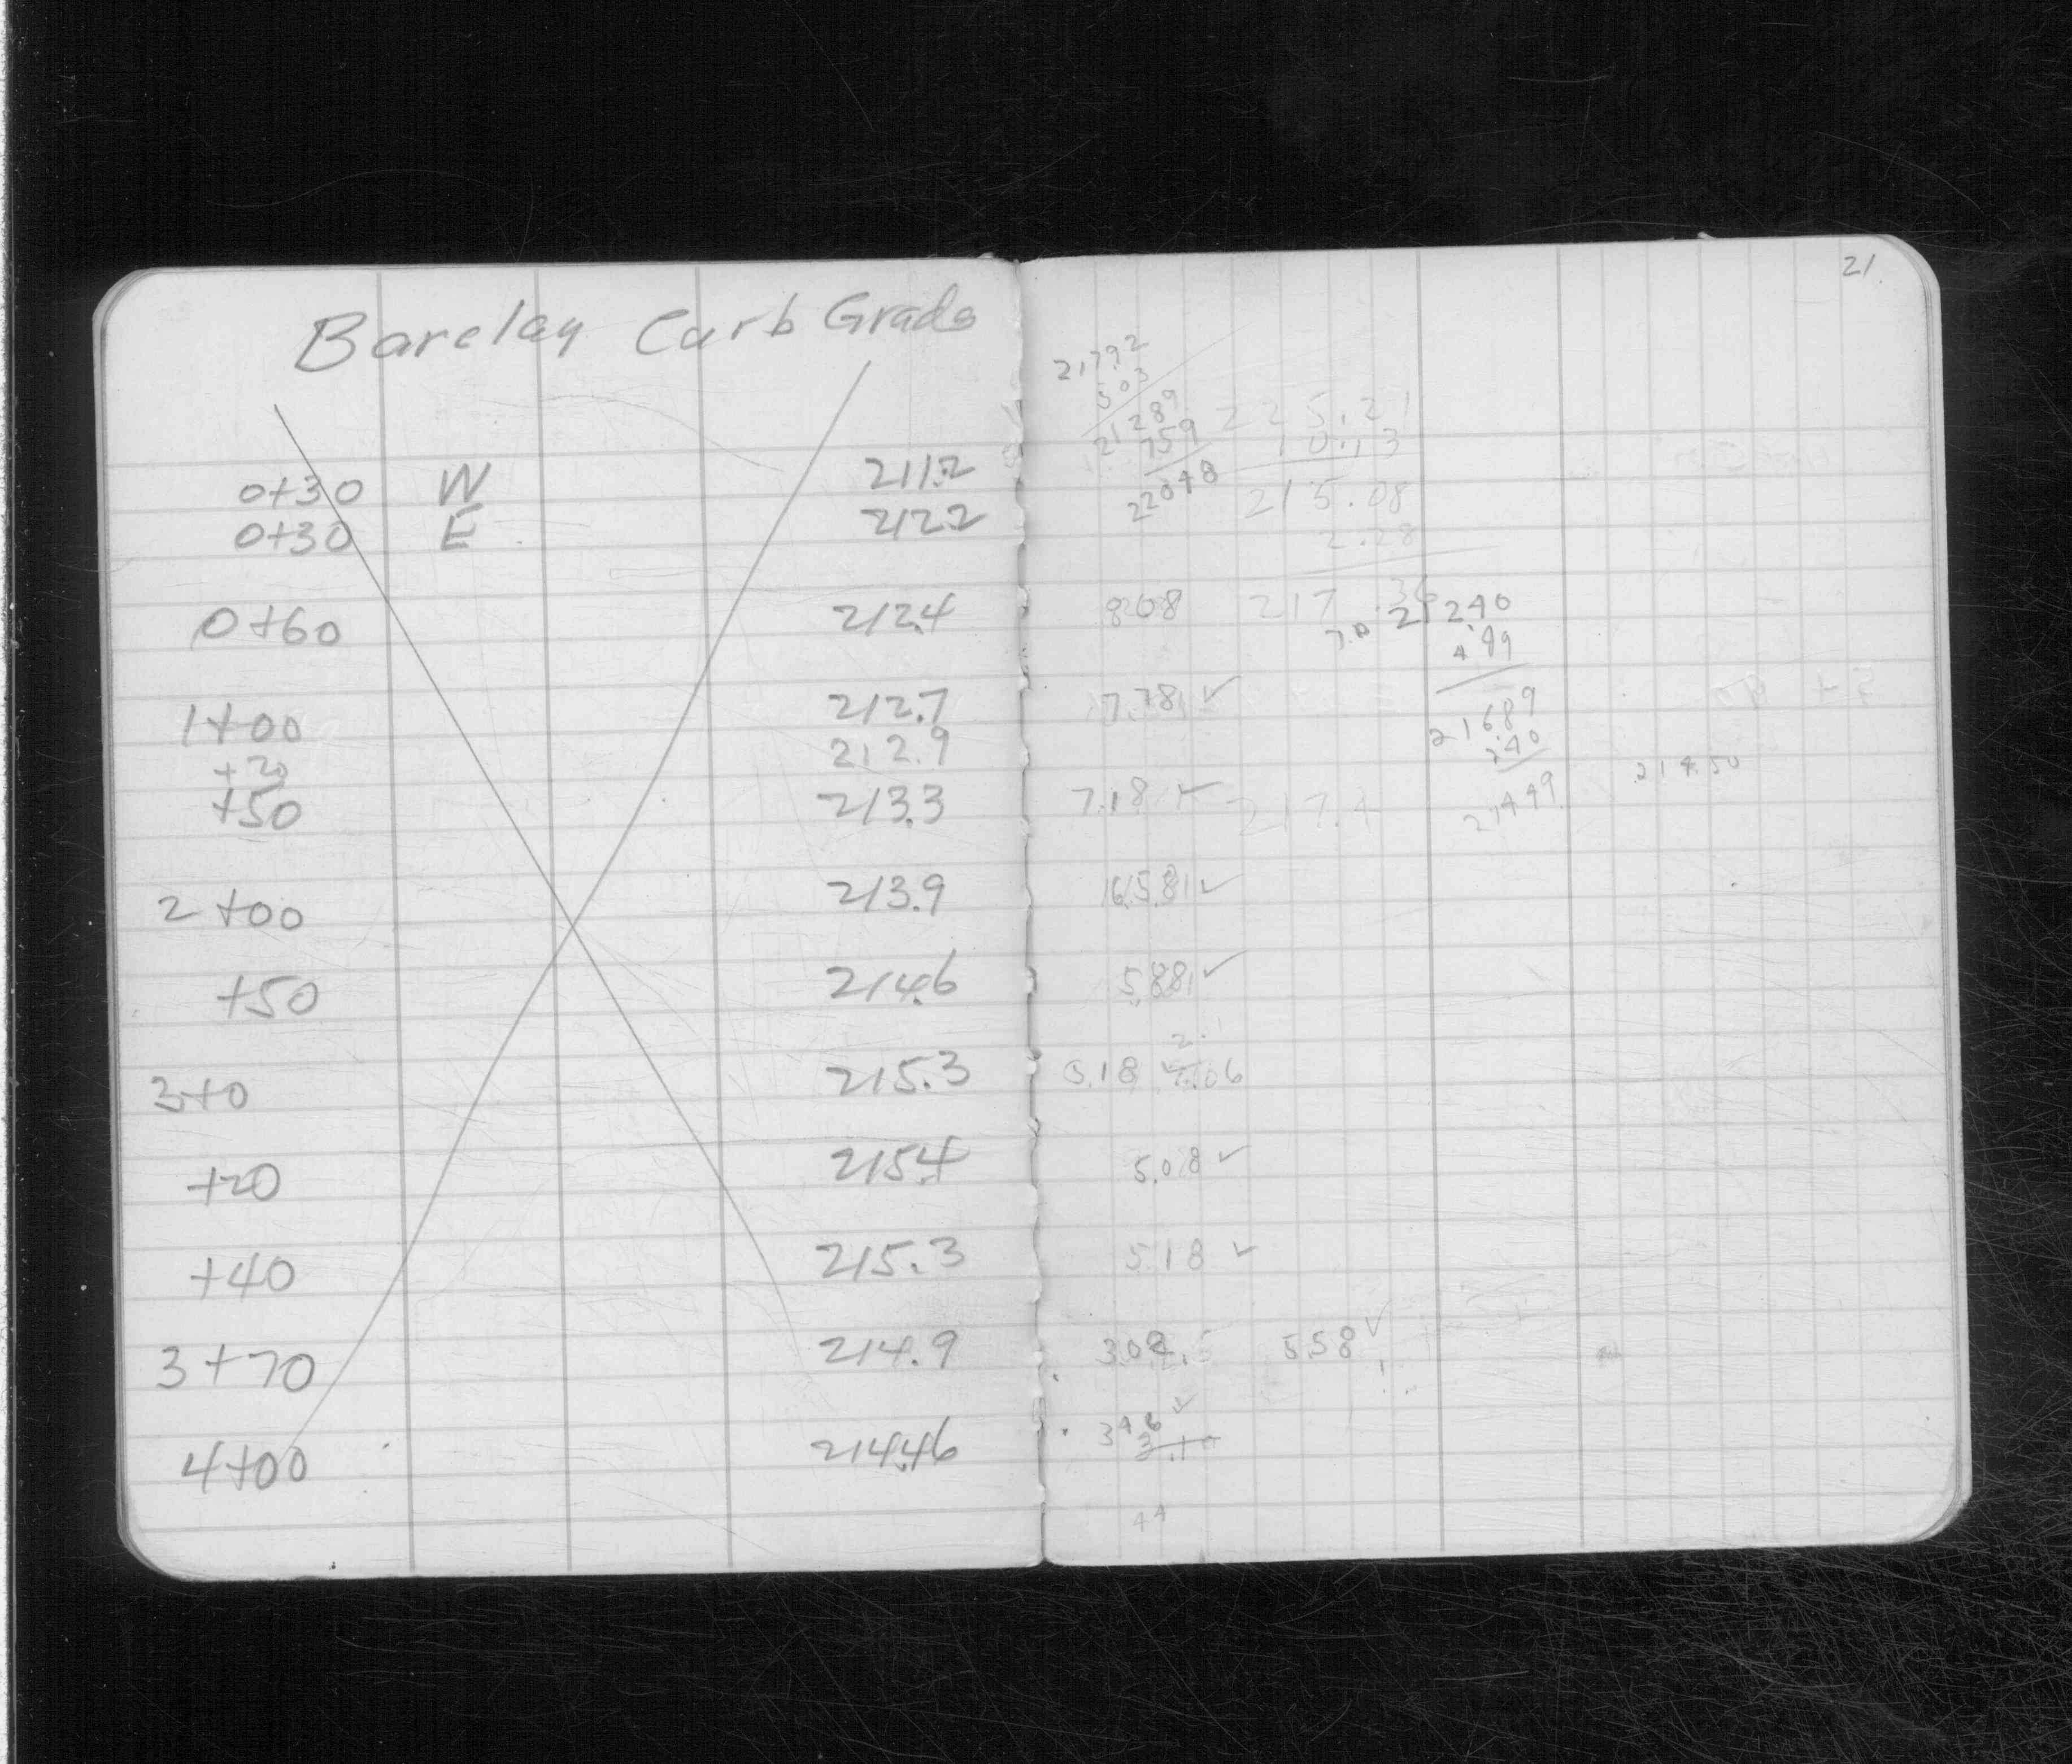 Barclay Curb Grade
0+30 W 211.2
0+30 E 212.2
0+60 212.4
1+00 212.7
+20 212.9
+50 213.3
2+00 213.9
+50 214.6
3+0 215.3
+20 215.4
+40 215.3
3+70 214.9
4+00 214.46
21
217.92
5.03
212.89
7.59
220.48
225.21
10.13
215.08
2.28
8.08 217.36
212.40
4.49
7.78 ✓
216.89
2.40
214.49
214.50
7.18 ✓ 217.4
6.58 ✓
5.88 ✓
5.18
5.08 ✓
5.18 ✓
5.58 ✓
3.46 ✓
44